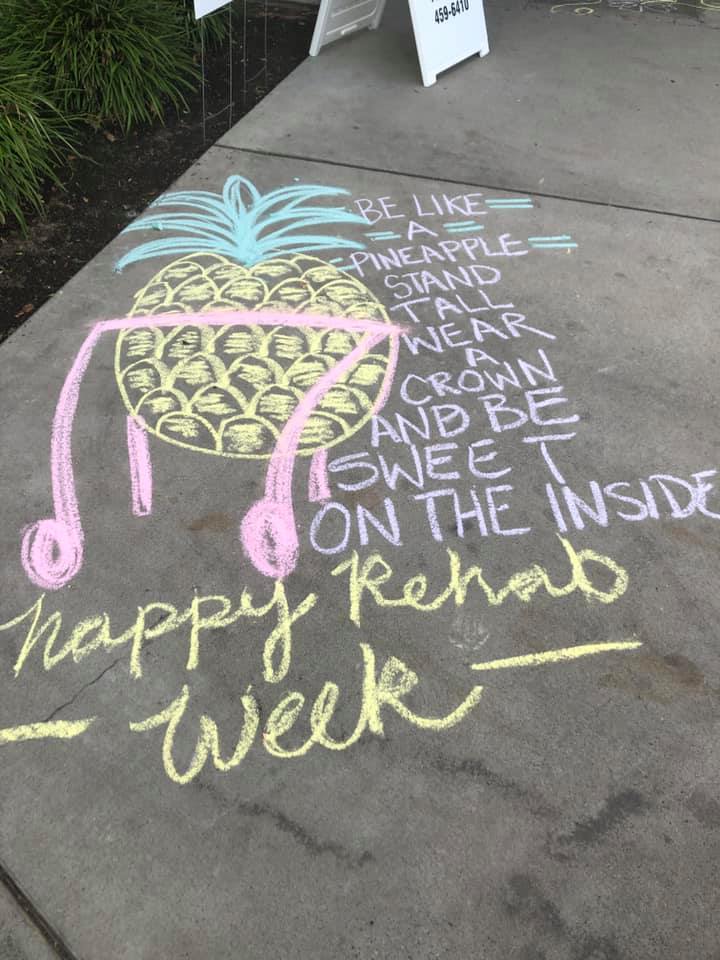 459-6410
BE LIKE
A
PINEAPPLE
STAND
TALL
WEAR
A
CROWN
AND BE
SWEET
ON THE INSIDE
happy Rehab
Week